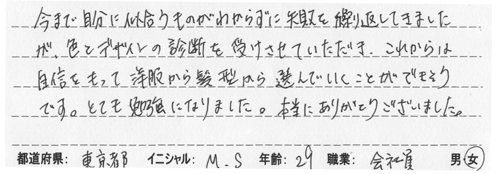 今まで自分に似合うものがわからずに失敗を繰り返してきました
が、色とデザインの診断を受けさせていただき、これからは
自信をもって洋服から髪型から選んでいくことができそう
です。とても勉強になりました。本当にありがとうございました。
都道府県: 東京都 イニシャル: M.S 年齢: 29 職業: 会社員 男・女